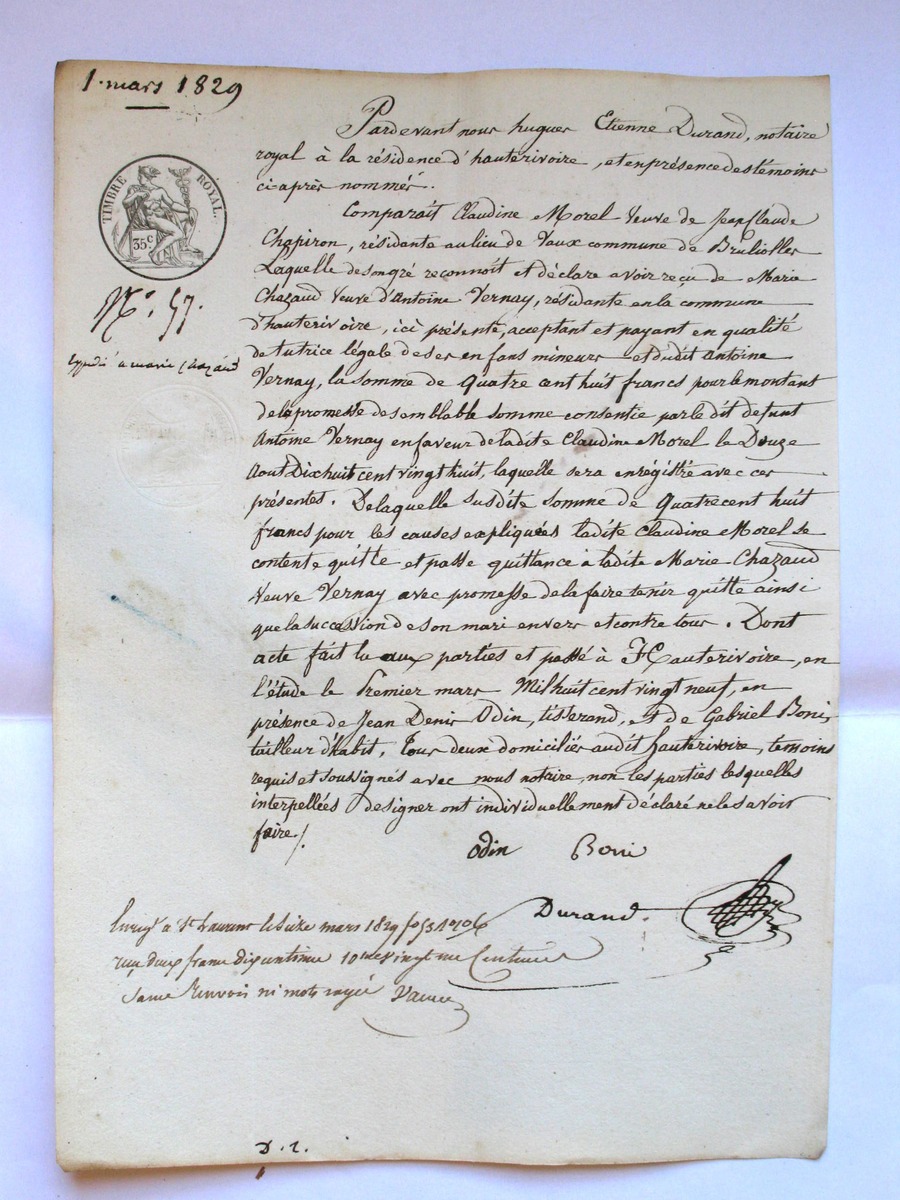 1. mars 1829
TIMBRE ROYAL.
35.c
N.o 57.
Expédié a marie Chazaud
Pardevant nous hugues Etienne Durand, notaire
royal à la résidence d'hauterivoire, et en présence des témoins
ci-après nommés.
Comparaît Claudine Morel Veuve de Jean Claude
Chapiron, résidante au lieu de Vaux commune de Brulioller
Laquelle de son gré reconnoît et déclare avoir reçu de Marie
Chazaud Veuve d'Antoine Vernay, résidante en la commune
d'hauterivoire, ici présente, acceptant et payant en qualité
de tutrice légale de ses enfans mineurs et dudit Antoine
Vernay, la somme de quatre cent huit francs pour le montant
de la promesse de semblable somme consentie par le dit defunt
Antoine Vernay en faveur de ladite Claudine Morel le Douze
Aout Dix huit cent vingt huit, laquelle sera enrégistré avec ces
présentes. De laquelle susdite somme de quatre cent huit
francs pour les causes expliquées ladite Claudine Morel se
contente quitte et passe quittance à ladite Marie Chazaud
Veuve Vernay avec promesse de la faire tenir quitte ainsi
que la succession de son mari envers et contre tous. Dont
acte fait lu aux parties et passé à Hauterivoire, en
l'étude le Premier mars Mil huit cent vingt neuf, en
présence de Jean Denis Odin, tisserand, et de Gabriel Boni,
tailleur d'habit, tous deux domiciliés audit hauterivoire, temoins
requis et soussignés avec nous notaire, non les parties lesquelles
interpellées de signer ont individuellement déclaré ne le savoir
faire./.
Odin Boni
Durand.
Enreg.é a St Laurent le seize mars 1829 fo 53
reçu deux francs dix centimes
Sans Renvois ni mots rayés
D. 2.